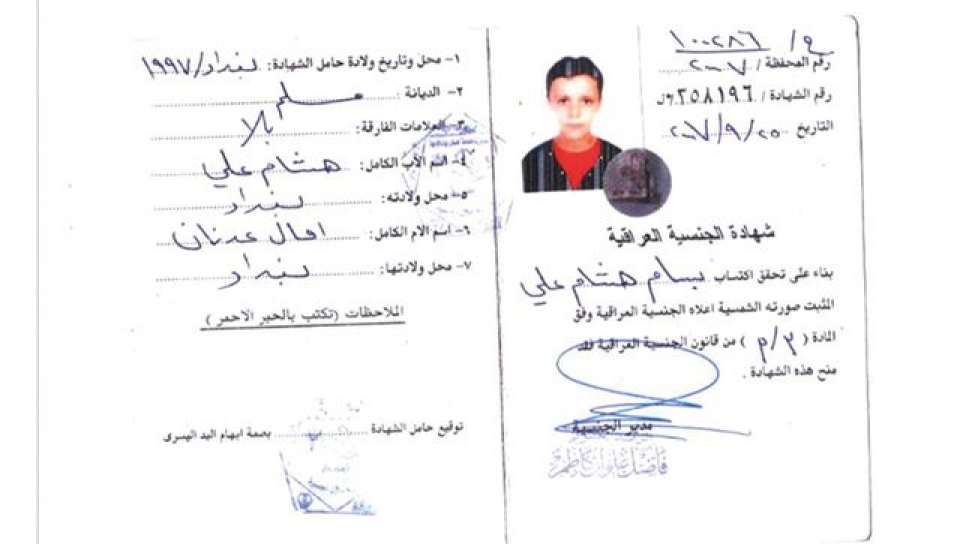 ع/ ١٠٠٢٨٦
رقم المحفظة / ٢٠٠٧
رقم الشهادة / ٢٥٨١٩٦ ل
التاريخ ٢٠٠٧/٩/٢٥
شهادة الجنسية العراقية
بناء على تحقق اكتساب بسام هشام علي
المثبت صورته الشمسية اعلاه الجنسية العراقية وفق
المادة ( ٣/م ) من قانون الجنسية العراقية فقد
منح هذه الشهادة .
مدير الجنسية
فاضل علوان كاظم
١- محل وتاريخ ولادة حامل الشهادة: بغداد/١٩٩٧
٢- الديانة : مسلم
٣- العلامات الفارقة: بلا
٤- اسم الأب الكامل: هشام علي
٥- محل ولادته: بغداد
٦- اسم الام الكامل: امال عدنان
٧- محل ولادتها: بغداد
الملاحظات (تكتب بالحبر الاحمر)
توقيع حامل الشهادة بصمة ابهام اليد اليسرى